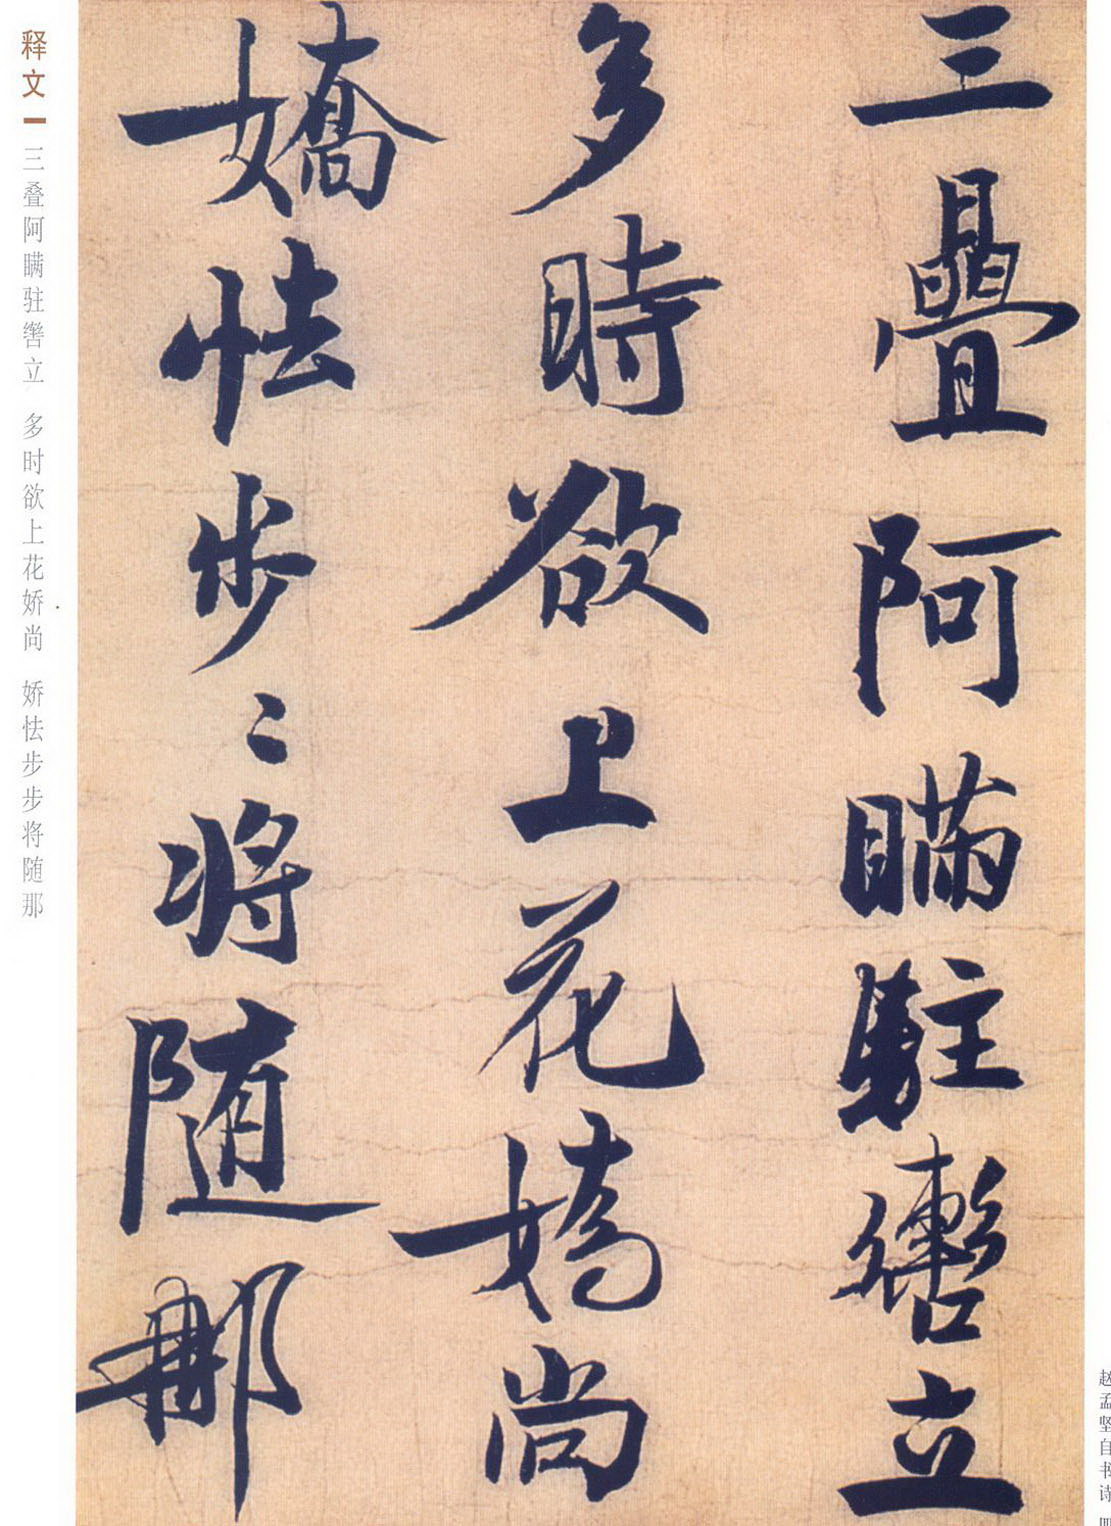 三疊阿瞞駐轡立
多時欲上花嬌尚
嬌怯步〻將随那
释文
三叠阿瞒驻辔立 多时欲上花娇尚 娇怯步步将随那
赵孟坚自书诗